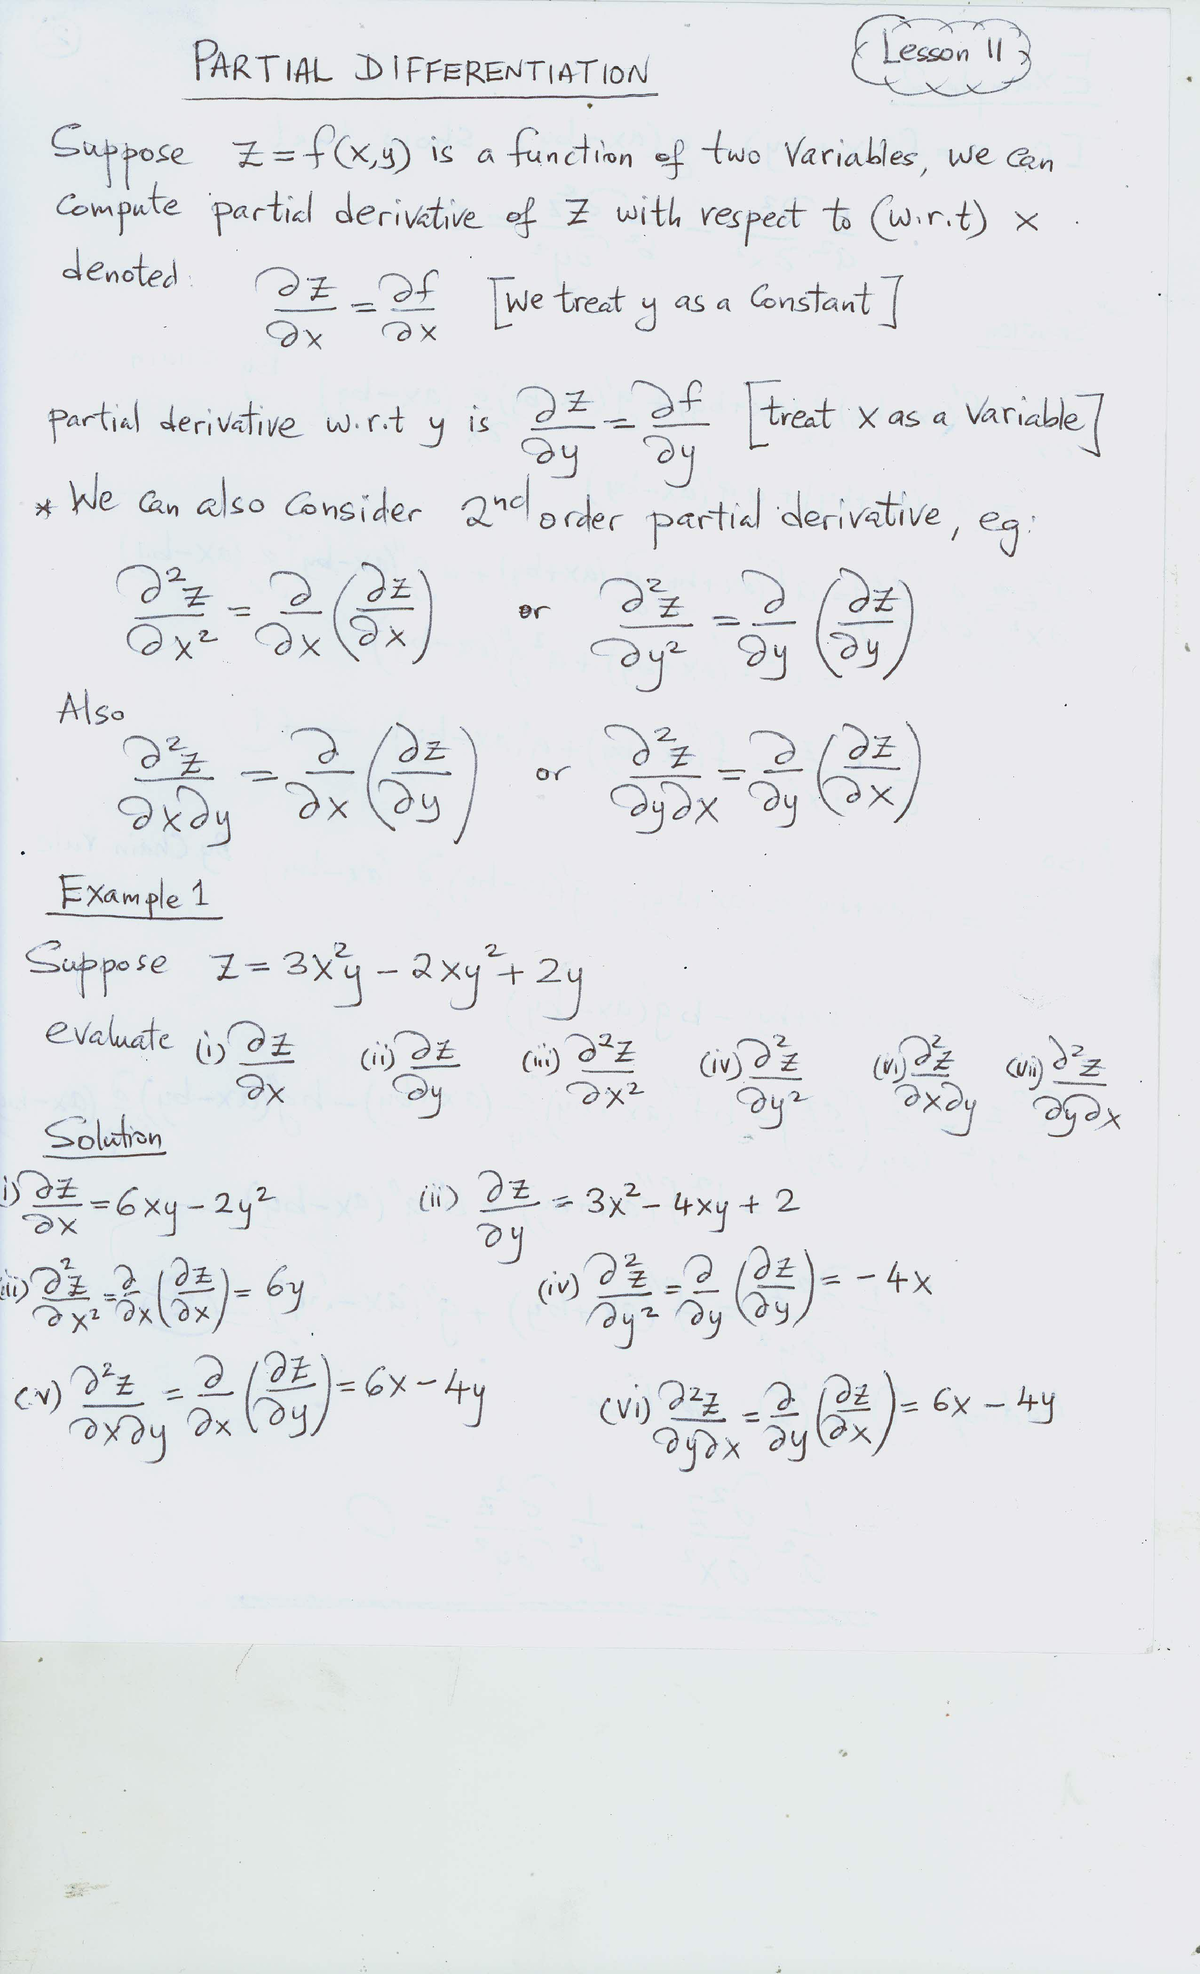 PARTIAL DIFFERENTIATION
Lesson 11
Suppose z = f(x,y) is a function of two Variables, we can
Compute partial derivative of z with respect to (w.r.t) x
denoted: ∂z/∂x = ∂f/∂x [we treat y as a Constant]
partial derivative w.r.t y is ∂z/∂y = ∂f/∂y [treat x as a Variable]
* We can also Consider 2nd order partial derivative, eg:
∂²z/∂x² = ∂/∂x (∂z/∂x) or ∂²z/∂y² = ∂/∂y (∂z/∂y)
Also
∂²z/∂x∂y = ∂/∂x (∂z/∂y) or ∂²z/∂y∂x = ∂/∂y (∂z/∂x)
Example 1
Suppose z = 3x²y - 2xy² + 2y
evaluate (i) ∂z/∂x (ii) ∂z/∂y (iii) ∂²z/∂x² (iv) ∂²z/∂y² (vi) ∂²z/∂x∂y (vii) ∂²z/∂y∂x
Solution
i) ∂z/∂x = 6xy - 2y² (ii) ∂z/∂y = 3x² - 4xy + 2
iii) ∂²z/∂x² = ∂/∂x (∂z/∂x) = 6y (iv) ∂²z/∂y² = ∂/∂y (∂z/∂y) = -4x
(v) ∂²z/∂x∂y = ∂/∂x (∂z/∂y) = 6x - 4y (vi) ∂²z/∂y∂x = ∂/∂y (∂z/∂x) = 6x - 4y